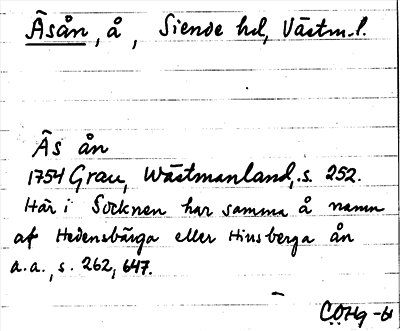 Äsån, å, Siende hd, Västm. l.
Äs ån
1754 Grau, Wästmanland, s. 252.
Här i Socknen har samma å namn
af Hedensbärga eller Hinsberga ån
a.a., s. 262, 647.
C.O.Hg -61